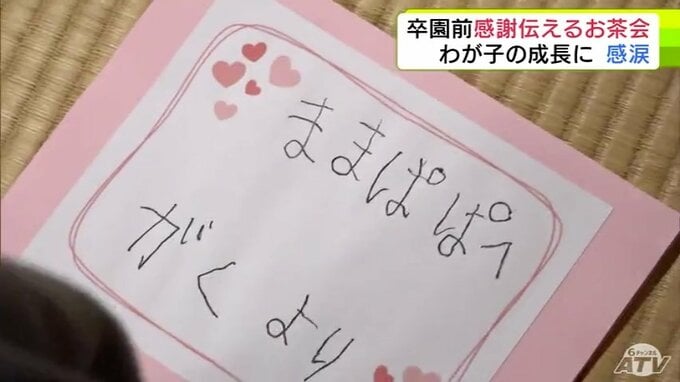 卒園前感謝伝えるお茶会
わが子の成長に 感涙
ままぱぱへ
がくより
6チャンネル
ATV